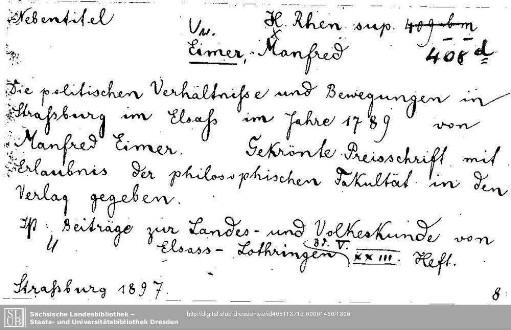 Nebentitel
H. Rhen. sup. 409 bm
Vu.
408 d
Eimer, Manfred
Die politischen Verhältnisse und Bewegungen in
Straßburg im Elsaß im Jahre 1789 von
Manfred Eimer. Gekrönte Preisschrift mit
Erlaubnis der philosophischen Fakultät in den
Verlag gegeben.
Beiträge zur Landes- und Volkeskunde von
Elsass-Lothringen Bd. V. XXIII. Heft.
Straßburg 1897. 8
SLUB
Sächsische Landesbibliothek –
Staats- und Universitätsbibliothek Dresden